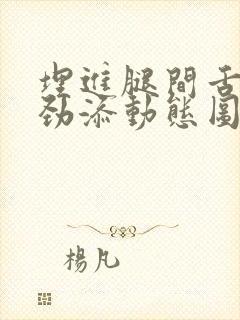 埋進腿間舌
勁添動態圖
楊凡